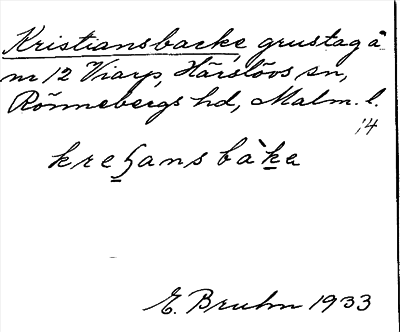 Kristiansbacke grustag å
nr 12 Viarp, Härslövs sn,
Rönnebergs hd, Malm. l.
14
kreʃans bàka
E. Bruhn 1933